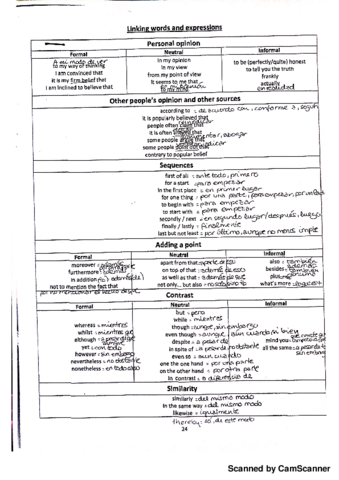 Linking words and expressions
Personal opinion
Formal Neutral Informal
A mi modo de ver
to my way of thinking
I am convinced that
it is my firm belief that
I am inclined to believe that
In my opinion
in my view
from my point of view
It seems to me
to my mind
to be (perfectly/quite) honest
to tell you the truth
frankly
actually
en realidad
Other people's opinion and other sources
according to = de acuerdo con, conforme a, según
it is popularly believed that
people often claim that
it is often
some people argue that
some people point out that
contrary to popular belief
Sequences
first of all = ante todo, primero
for a start para empezar
in the first place = en primer lugar
for one thing = por una parte, para empezar
to begin with = para empezar
to start with = para empezar
secondly / next = en segundo lugar/después, luego
finally / lastly = finalmente
last but not least = por último, aunque no menos
Adding a point
Formal Neutral Informal
moreover
furthermore = además
in addition
not to mention the fact that
apart from that
on top of that = además de eso
as well as that = además de que
not only... but also =
also = también
besides = además
plus
what's more
Contrast
Formal Neutral Informal
whereas = mientras
whilst = mientras que
although = a pesar de que
aunque
yet = con todo
however = sin embargo
nevertheless = no obstante
nonetheless = con todo
but = pero
while = mientras
though = aunque, sin embargo
even though = aunque,
despite = a pesar de
in spite of = a pesar de, no obstante
even so = aun cuando
the one hand = por una parte
on the other hand = por otra parte
in contrast = a diferencia de
mind you
all the same = a pesar de
sin embargo
Similarity
similarly = del mismo modo
in the same way = del mismo modo
likewise = igualmente
24
Scanned by CamScanner